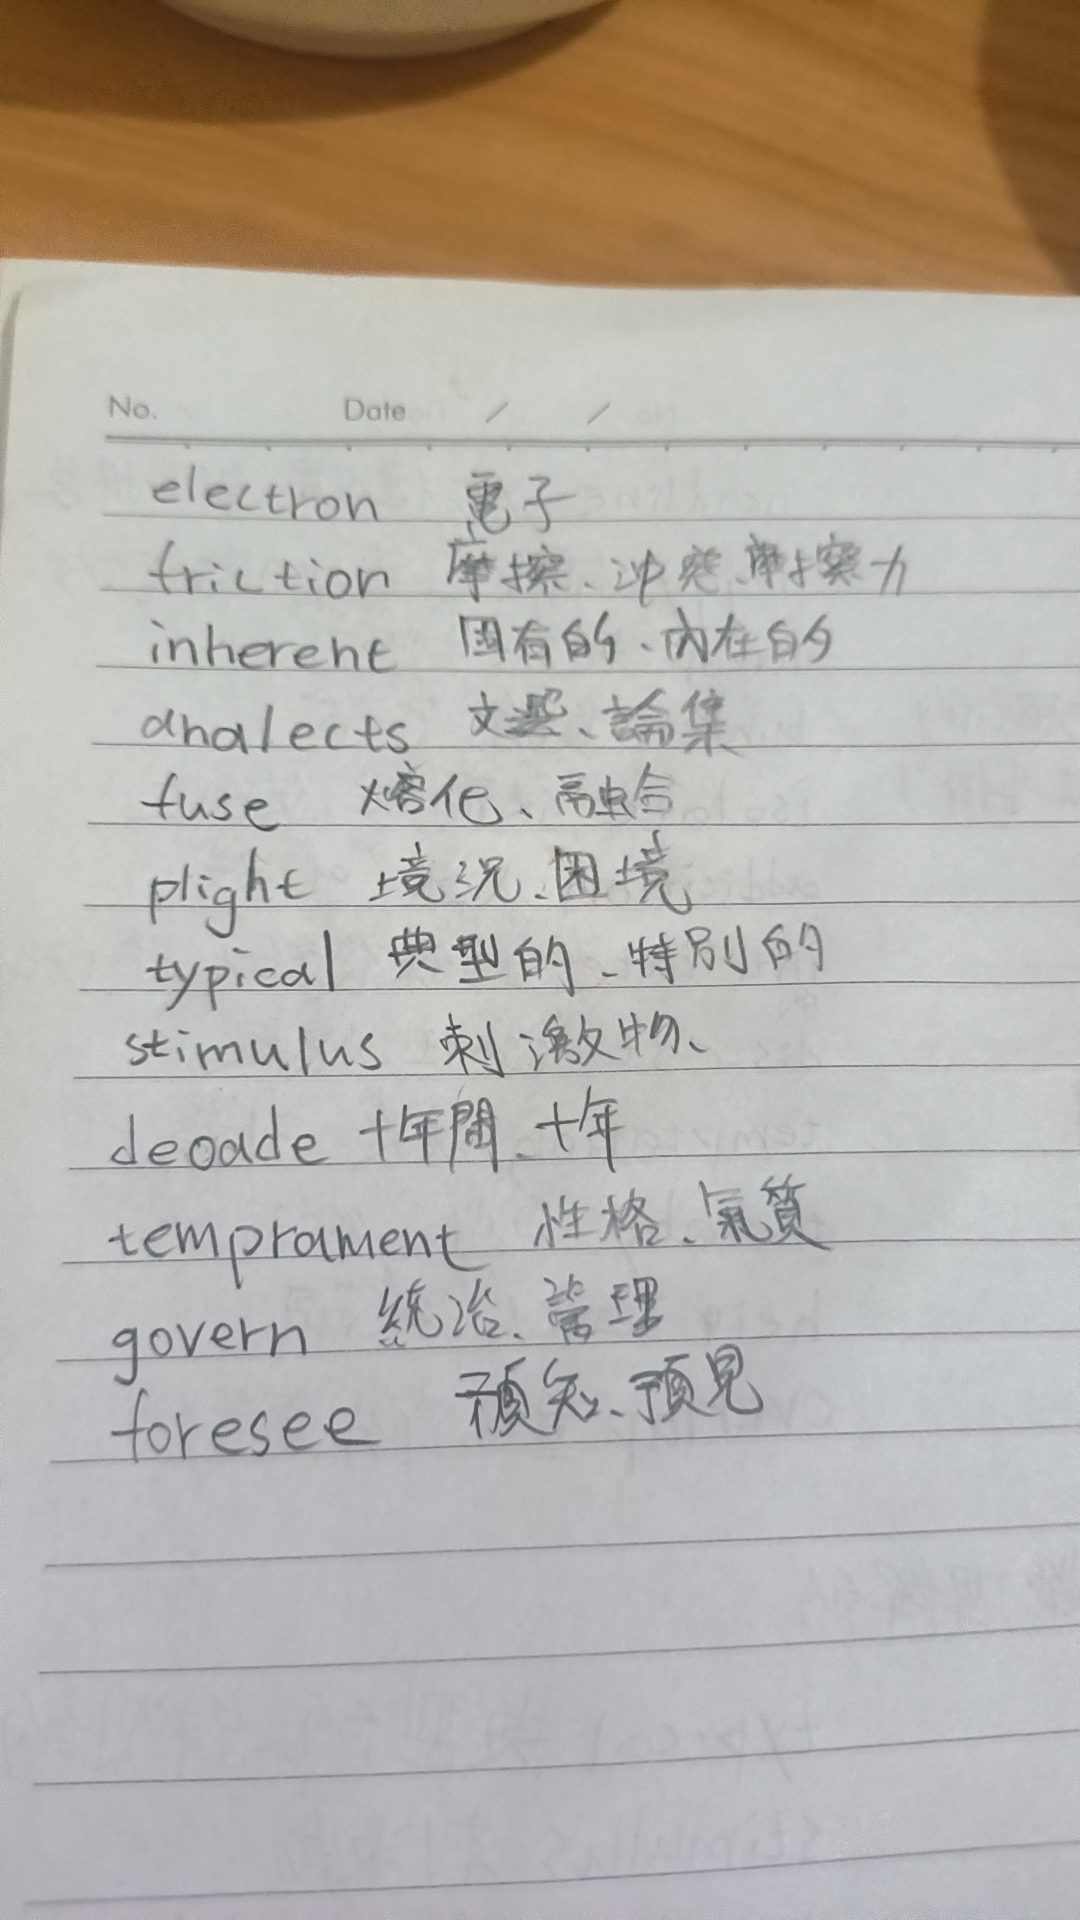 No. Date / /
electron 電子
friction 摩擦、沖突、摩擦力
inherent 固有的、內在的
analects 文選、論集
fuse 熔化、融合
plight 境況、困境
typical 典型的、特別的
stimulus 刺激物、
deoade 十年間、十年
temprament 性格、氣質
govern 統治、管理
foresee 預知、預見